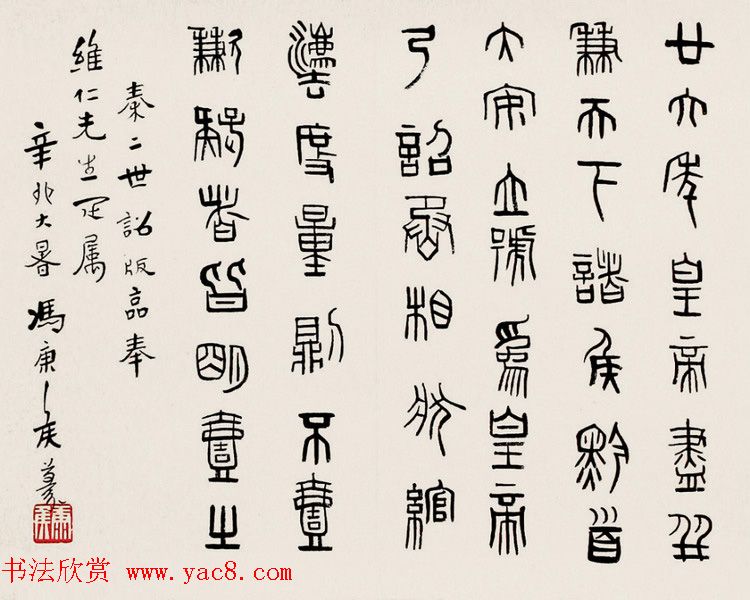 廿六年皇帝盡并
兼天下諸侯黔首
大安立號爲皇帝
乃詔丞相狀綰
灋度量則不壹
歉疑者皆明壹之
秦二世詔版奉
維仁先生正属
辛卯大暑 馮康侯篆
书法欣赏 www.yac8.com